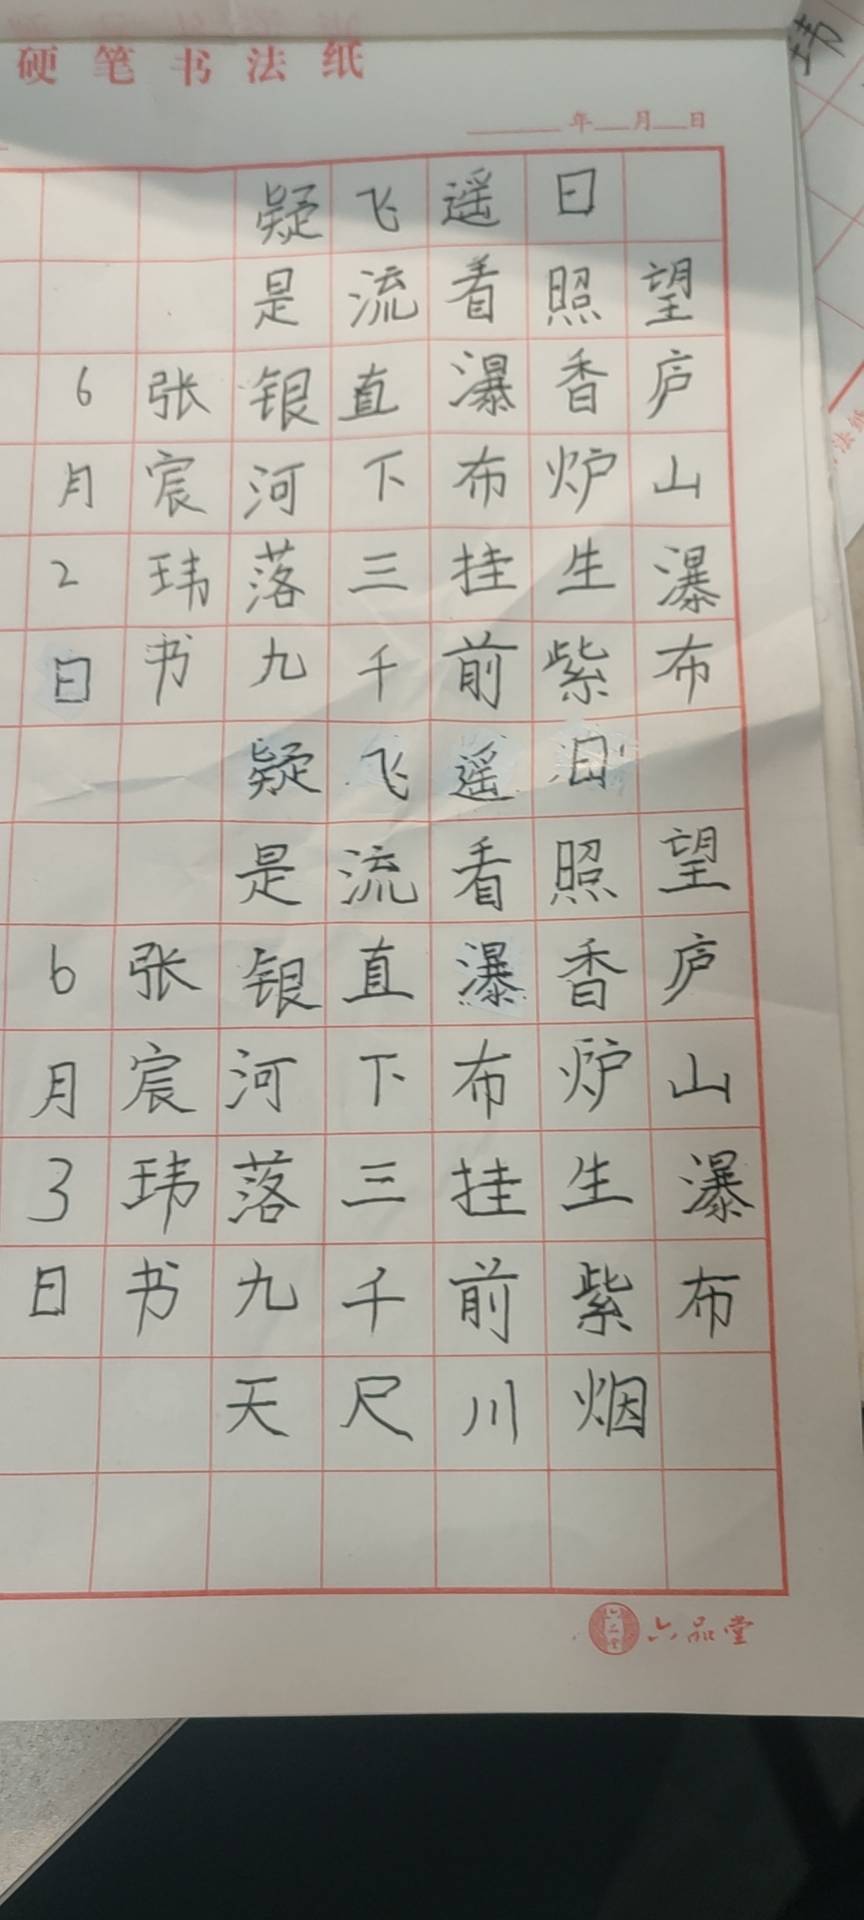 硬笔书法纸
年 月 日
望庐山瀑布 望庐山瀑布
日照香炉生紫日照香炉生紫烟
遥看瀑布挂前遥看瀑布挂前川
飞流直下三千飞流直下三千尺
疑是银河落九疑是银河落九天
张宸玮书 张宸玮书
6月2日 6月3日
六品堂
玮